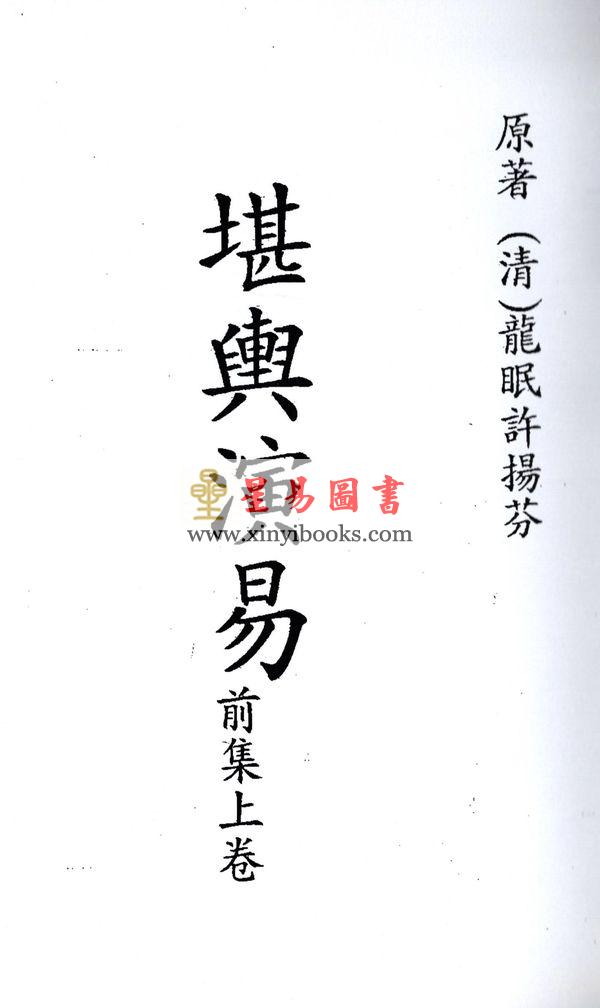 原著（清）龍眠許揚芬
堪輿演易前集上卷
星易圖書
www.xinyibooks.com